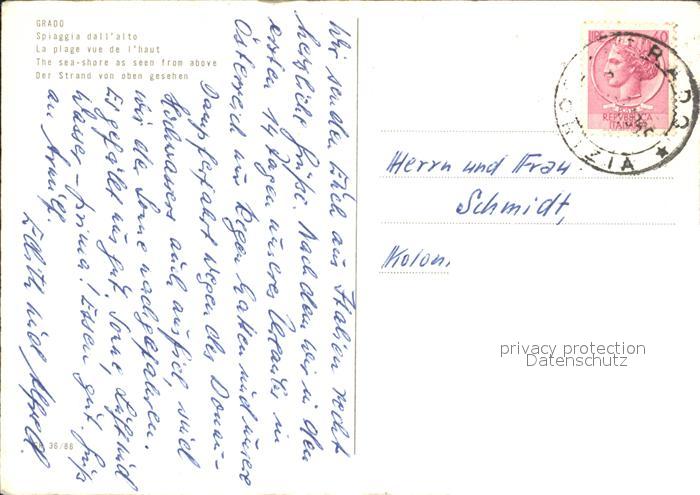 GRADO
Spiaggia dall'alto
La plage vue de l'haut
The sea-shore as seen from above
Der Strand von oben gesehen
Wir senden Euch aus Italien recht
herzliche Grüße. Nachdem wir in den
ersten 14 Tagen unseres Urlaubs in
Österreich nur Regen hatten und unsere
Dampferfahrt wegen des Donau-
Hochwassers auch ausfiel, sind
wir der Sonne nachgefahren.
Es gefällt uns gut. Sonne, Luft und
Wasser - prima! Essen gut. Gruß
an
und Alfred.
36/88
LIRE 40
REPVBBLICA
ITALIANA
GRADO
GORIZIA
Herrn und Frau
Schmidt,
Kolon.
privacy protection
Datenschutz